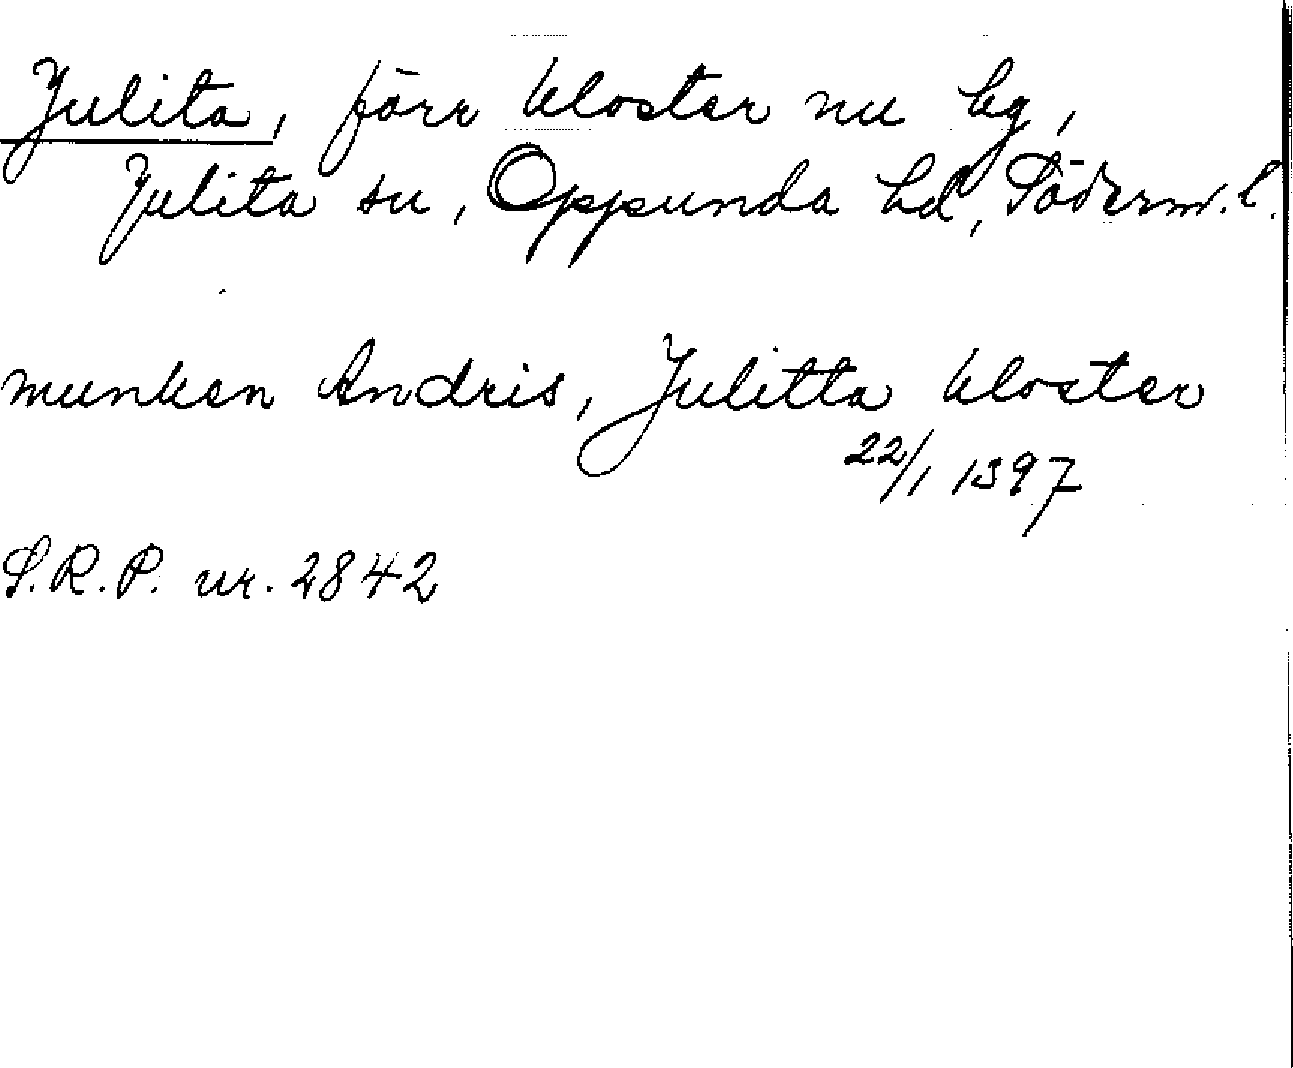 Julita, förr kloster nu hg,
Julita sn, Oppunda hd, Söderm. l.
munken Andris, Julitta kloster
22/1 1397
S.R.P. nr. 2842